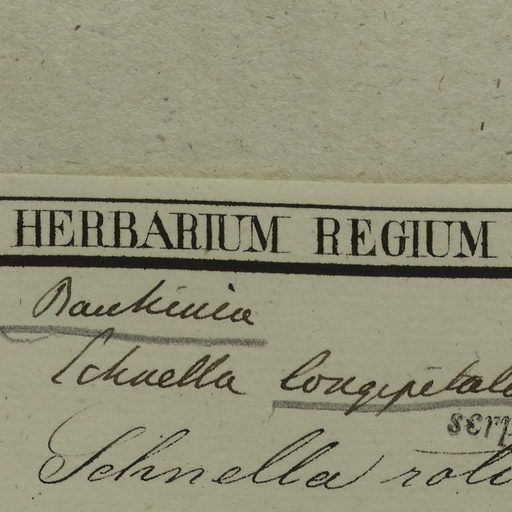 HERBARIUM REGIUM
Bauhinia
Schnella longipetala
serp
Schnella